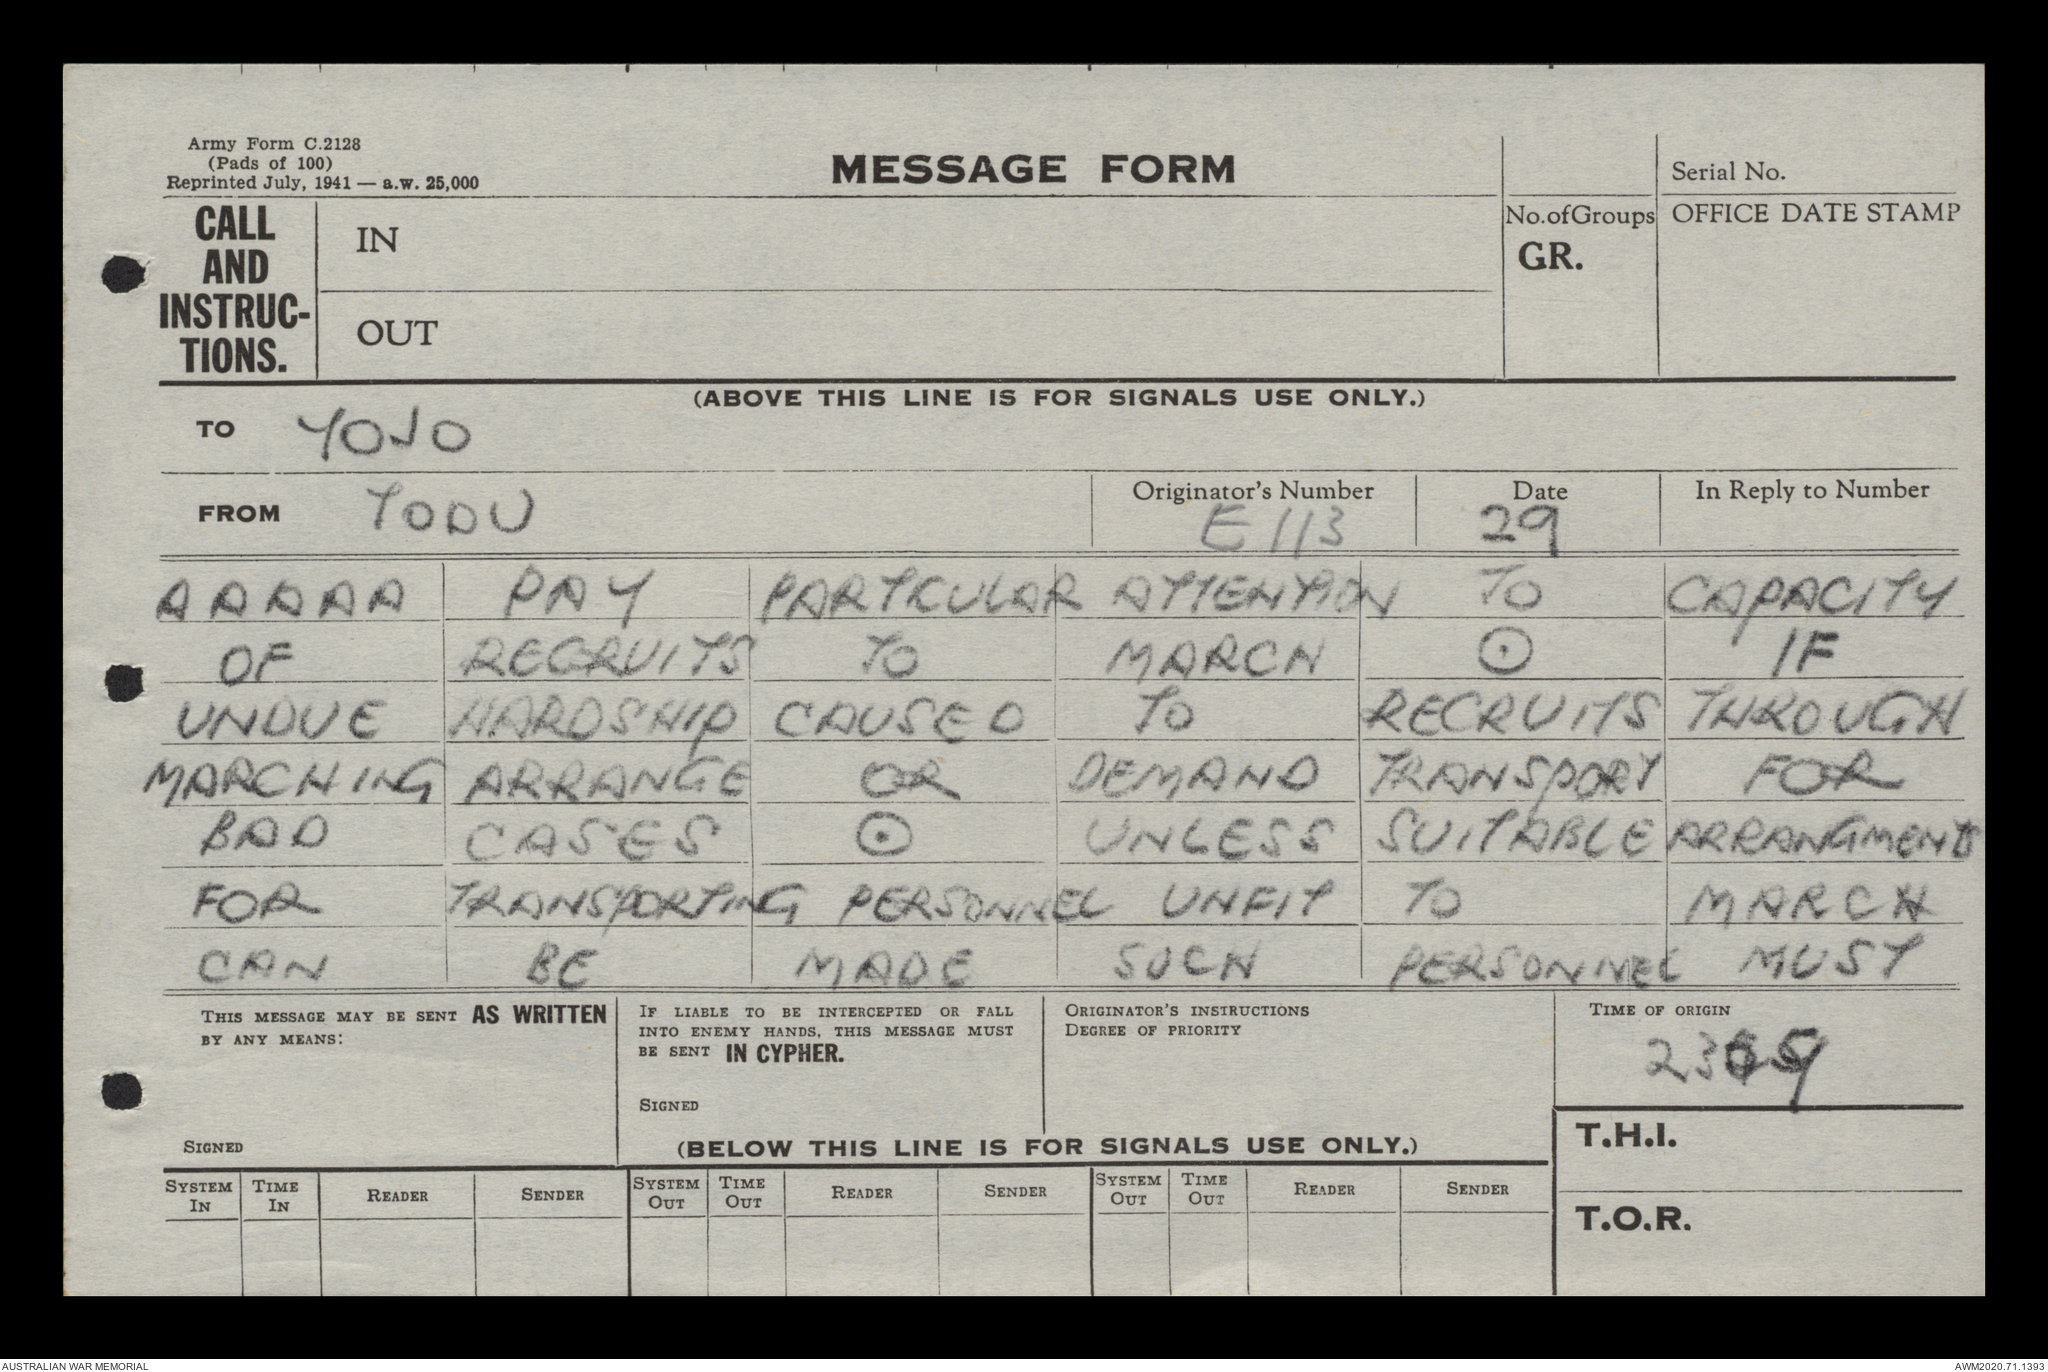 Army Form C.2128
(Pads of 100)
Reprinted July, 1941 — a.w. 25,000
MESSAGE FORM
Serial No.
CALL AND INSTRUC-TIONS.
IN
No. of Groups
GR.
OFFICE DATE STAMP
OUT
(ABOVE THIS LINE IS FOR SIGNALS USE ONLY.)
TO YOJO
FROM YODU
Originator's Number E113
Date 29
In Reply to Number
AAAAA PAY PARTICULAR ATTENTION TO CAPACITY
OF RECRUITS TO MARCH ⊙ IF
UNDUE HARDSHIP CAUSED TO RECRUITS THROUGH
MARCHING ARRANGE OR DEMAND TRANSPORT FOR
BAD CASES ⊙ UNLESS SUITABLE ARRANGMENTS
FOR TRANSPORTING PERSONNEL UNFIT TO MARCH
CAN BE MADE SUCH PERSONNEL MUST
THIS MESSAGE MAY BE SENT AS WRITTEN
BY ANY MEANS:
SIGNED
IF LIABLE TO BE INTERCEPTED OR FALL
INTO ENEMY HANDS, THIS MESSAGE MUST
BE SENT IN CYPHER.
SIGNED
ORIGINATOR'S INSTRUCTIONS
DEGREE OF PRIORITY
TIME OF ORIGIN
(BELOW THIS LINE IS FOR SIGNALS USE ONLY.)
T.H.I.
SYSTEM IN TIME IN READER SENDER SYSTEM OUT TIME OUT READER SENDER SYSTEM OUT TIME OUT READER SENDER
T.O.R.
AUSTRALIAN WAR MEMORIAL
AWM2020.71.1393